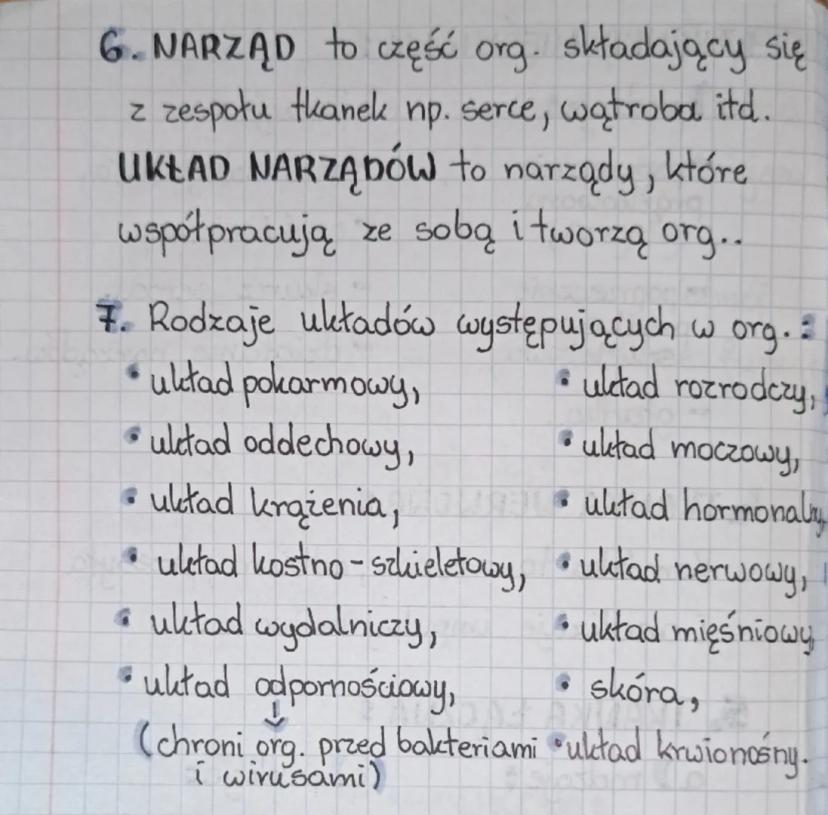 6. NARZĄD to część org. składający się
z zespołu tkanek np. serce, wątroba itd.
UKŁAD NARZĄDÓW to narządy, które
współpracują ze sobą i tworzą org..
7. Rodzaje układów występujących w org.:
• układ pokarmowy,
• układ oddechowy,
• układ krążenia,
• układ kostno-szkieletowy,
• układ wydalniczy,
• układ odpornościowy,
↓
(chroni org. przed bakteriami
i wirusami)
• układ rozrodczy,
• układ moczowy,
• układ hormonalny,
• układ nerwowy,
• układ mięśniowy
• skóra,
• układ krwionośny.